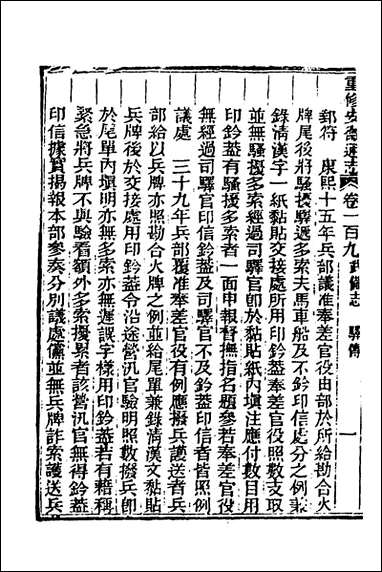 重修安徽通志 卷一百九 武備志 驛傳 一
郵符 康熙十五年兵部議准奉差官役由部於所給勘合火
牌尾後將騷擾驛遞多索夫馬車船及不鈐印信處分之例兼
錄淸漢字一紙黏貼交接處所用印鈐蓋奉差官役照數支取
並無騷擾多索經過司驛官卽於黏貼紙內塡注應付數目用
印鈐蓋有騷擾多索者一面申報督撫指名題參若奉差官役
無經過司驛官印信鈐蓋及司驛官不及鈐蓋印信者皆照例
議處 三十九年兵部覆准奉差官役有例應撥兵護送者兵
部給以兵牌亦照勘合火牌之例並給尾單兼錄淸漢文黏貼
兵牌後於交接處用印鈐蓋令沿途營汛官驗明照數撥兵卽
於尾單內塡明亦無多索亦無遲誤字樣用印鈐蓋若有藉稱
緊急將兵牌不與驗看額外多索擾累者該營汛官無得鈐蓋
印信據實揭報本部參奏分別議處儻並無兵牌詐索護送兵